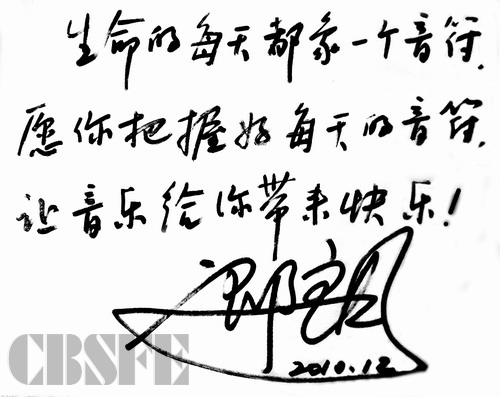 生命的每天都象一个音符.
愿你把握好每天的音符.
让音乐给你带来快乐!
2010.12
CBSFE